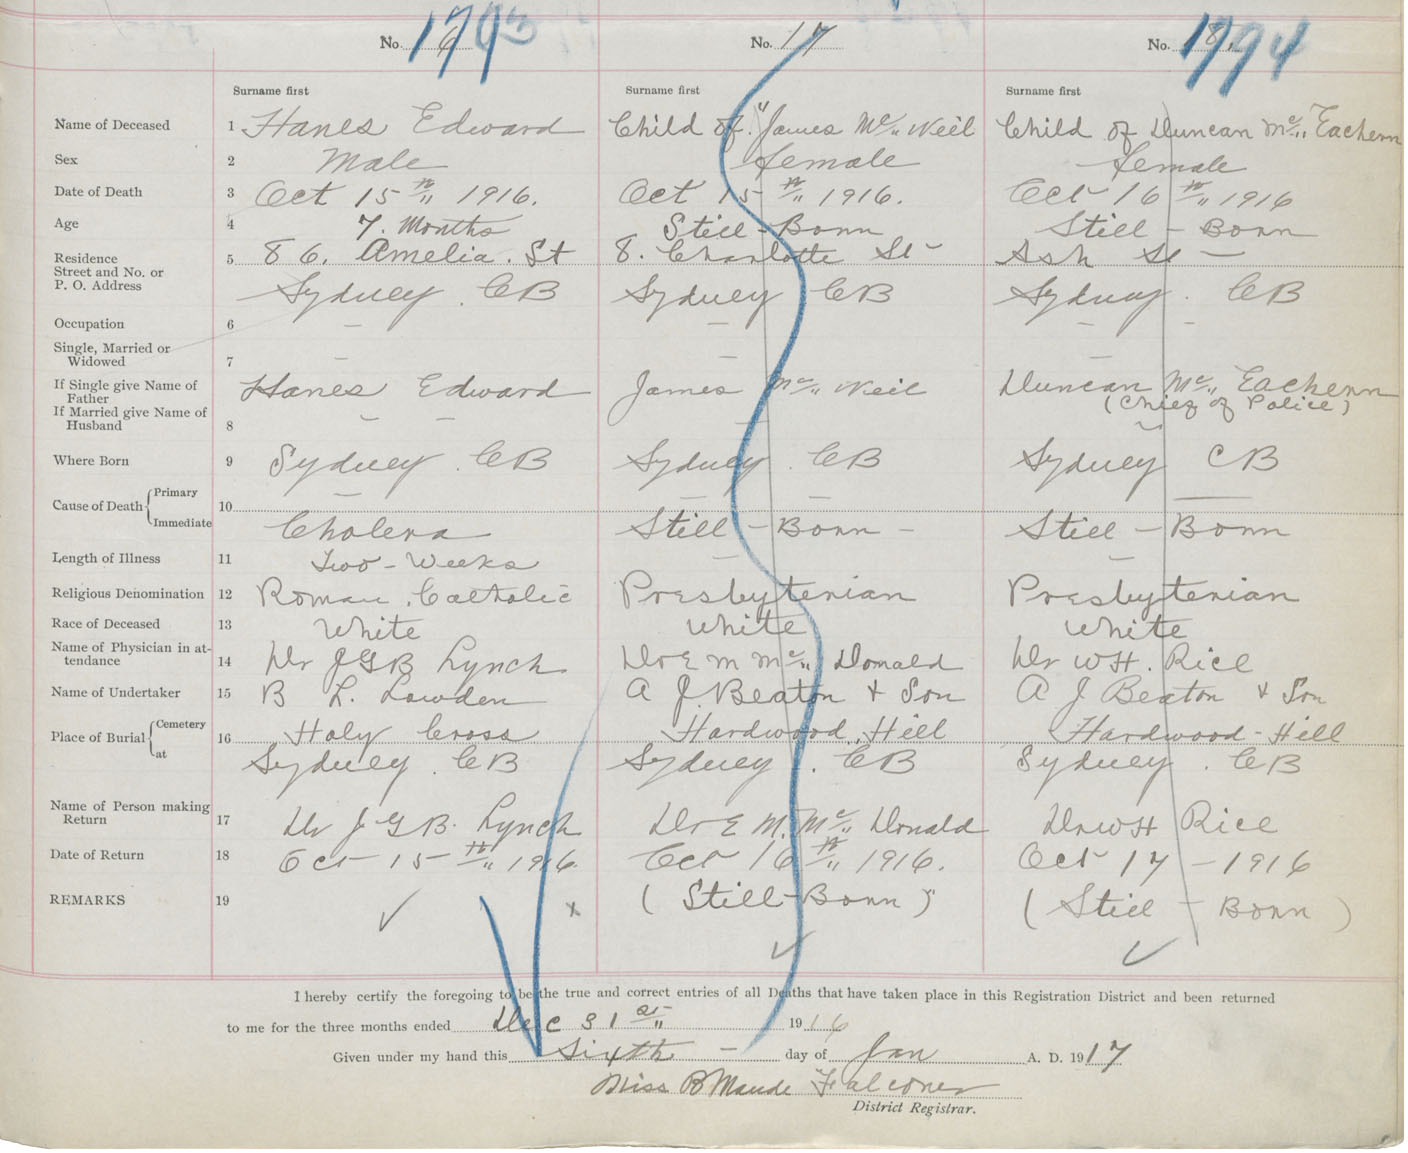 No. 16 1793 No. 17 No. 18. 1794
Surname first Surname first Surname first
Name of Deceased 1 Hanes Edward Child of "James Mc" Neil Child of Duncan Mc" Eachern
Sex 2 Male female female
Date of Death 3 Oct 15th 1916. Oct 15th 1916. Oct 16th 1916
Age 4 7. Months Still-Born Still-Born
Residence 5 86. Amelia. St 8. Charlotte St Ash St —
Street and No. or
P. O. Address Sydney. CB Sydney CB Sydney. CB
Occupation 6 – – – –
Single, Married or
Widowed 7 – – –
If Single give Name of
Father Hanes Edward James Mc" Neil Duncan Mc" Eachern
(Chief of Police)
If Married give Name of
Husband 8 – – –
Where Born 9 Sydney. CB Sydney. CB Sydney CB
Cause of Death Primary 10 – – – —
Immediate Cholera Still-Born – Still-Born
Length of Illness 11 Two-Weeks – –
Religious Denomination 12 Roman. Catholic Presbyterian Presbyterian
Race of Deceased 13 White White White
Name of Physician in at-
tendance 14 Dr JGB Lynch Dr E M Mc" Donald Dr WH. Rice
Name of Undertaker 15 B L. Lowden A J. Beaton & Son A J Beaton & Son
Place of Burial Cemetery 16 Holy Cross Hardwood Hill Hardwood-Hill
at Sydney. CB Sydney. CB Sydney. CB
Name of Person making
Return 17 Dr J GB. Lynch Dr E M. Mc" Donald Dr WH Rice
Date of Return 18 Oct 15th 1916. Oct 16th 1916. Oct 17 – 1916
REMARKS 19 (Still-Born) (Still-Born)
I hereby certify the foregoing to be the true and correct entries of all Deaths that have taken place in this Registration District and been returned
to me for the three months ended Dec 31st 1916
Given under my hand this Sixth – day of Jan A. D. 1917
Miss B Maude Falconer
District Registrar.